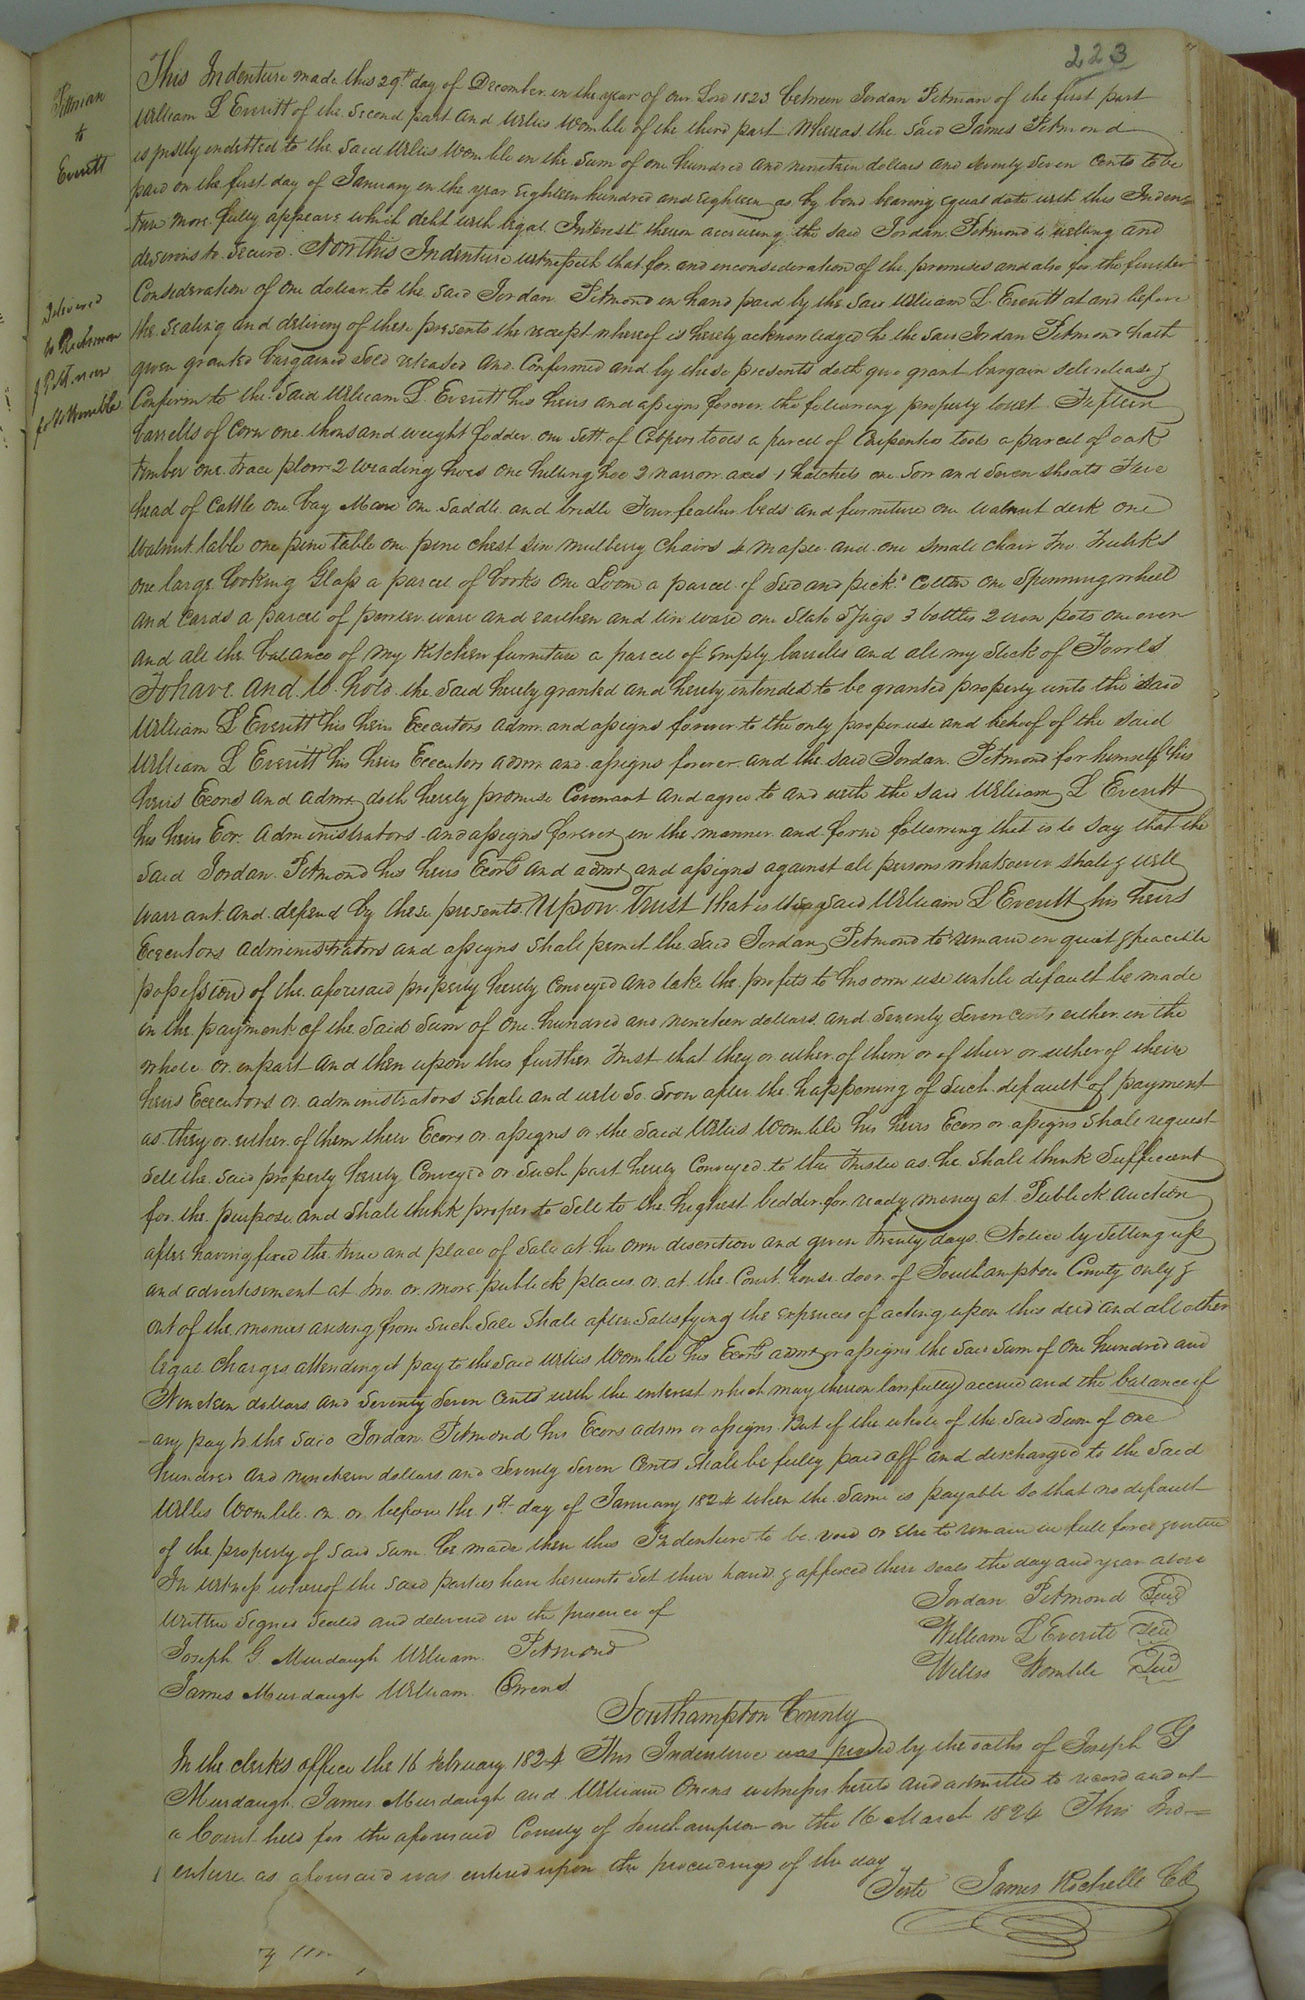 223
Pitman
to
Everitt
Delivered
to Richman
J Pitt now
for W Womble
This Indenture made this 29th day of December in the year of our Lord 1823 between Jordan Pitman of the first part
William L Everitt of the second part and Willis Womble of the third part Whereas the said James Pitmond
is justly indetted to the said Willis Womble in the sum of one hundred and nineteen dollars and seventy seven cents to be
paid on the first day of January in the year eighteen hundred and eighteen as by bond bearing equal date with this Inden=
=ture more fully appears which debt with legal Interest thereon accruing the said Jordan Pitmond is willing and
desirous to secure. Now this Indenture witnesseth that for and in consideration of the premises and also for the further
Consideration of one dollar to the said Jordan Pitmond in hand paid by the said William L Everitt at and before
the sealing and delivery of these presents the receipt whereof is hereby acknowledged he the said Jordan Pitmond hath
given granted bargained sold released and Confirmed and by these presents doth give grant bargain sell release &
Confirm to the said William L. Everitt his heirs and assigns forever the following property towit Fifteen
barrells of corn one thousand weight fodder one sett of Coopers tools a parcel of Carpenters tools a parcel of oak
timber one trace plow 2 weading hoes one hilling hoe 2 narrow axes 1 hatchets one sow and seven shoats Five
head of cattle one bay Mare one saddle and bridle Four feather beds and furniture one walnut desk one
Walnut table one pine table one pine chest six mulberry chairs 4 maple and one small chair Two Trunks
one large looking Glass a parcel of books one Loom a parcel of seed and pick.d Cotton one Spinning wheel
and cards a parcel of pewter ware and earthen and tin ware one slate 5 Jugs 3 bottles 2 iron pots one oven
and all the balance of my Kitchen furniture a parcel of empty barrells and all my stock of Fowls
To have and to hold the said hereby granted and hereby intended to be granted property unto the said
William L Everitt his heirs Executors admr. and assigns forever to the only proper use and behoof of the said
William L Everitt his heirs Executors admr and assigns forever and the said Jordan Pitmond for himself his
heirs Exors and admr doth hereby promise Covenant and agree to and with the said William L Everitt
his heirs Exr. administrators and assigns forever in the manner and form following that is to say that the
said Jordan Pitmond his heirs Exors and admr and assigns against all persons whatsoever shall & will
warrant and defend by these presents. Upon Trust that is the said William L Everitt his heirs
Executors administrators and assigns shall permit the said Jordan Pitmond to remain in quiet & peacible
possession of the aforesaid property hereby conveyed and take the profits to his own use untill default be made
in the payment of the said sum of one hundred and nineteen dollars and seventy seven cents either in the
whole or in part and then upon this further Trust that they or either of them or of their or either of their
heirs Executors or administrators shall and will so soon after the happening of such default of payment
as they or either of them their Exors or assigns or the said Willis Womble his heirs Exors or assigns shall request
sell the said property hereby Conveyed or such part hereby Conveyed to the Trustee as he shall think sufficient
for the purpose and shall think proper to sell to the highest bidder for ready money at Publick auction
after having fixed the time and place of sale at his own discretion and given twenty days Notice by setting up
and advertisement at two or more publick places or at the Court house door of Southampton County only &
out of the monies arising from such sale shall after satisfying the expences of acting upon this deed and all other
legal charges attending it pay to the said Willis Womble his Exors admr or assigns the said sum of one hundred and
Nineteen dollars and seventy seven cents with the interest which may thereon lawfully accrue and the balance if
any pay to the said Jordan Pitmond his Exors admr or assigns. But if the whole of the said sum of one
hundred and nineteen dollars and seventy seven cents shall be fully paid off and discharged to the said
Willis Womble on or before the 1st day of January 1824 when the same is payable so that no default
of the property of said sum be made then this Indenture to be void or else to remain in full force & virtue
In witness whereof the said parties have hereunto set their hand & affixed their seals the day and year above
written Signed Sealed and delivered in the presence of
Joseph G Murdaugh William Pitmond
James Murdaugh William Owens
Jordan Pitmond Seal
William L Everitt Seal
Willis Womble Seal
Southampton County
In the clerks office the 16 February 1824 This Indenture was proved by the oaths of Joseph G
Murdaugh James Murdaugh and William Owens witnesses hereto and admitted to record and at
a Court held for the aforesaid County of Southampton on the 16 March 1824 This Ind=
enture as aforesaid was entered upon the proceedings of the day
Teste James Rochelle CC